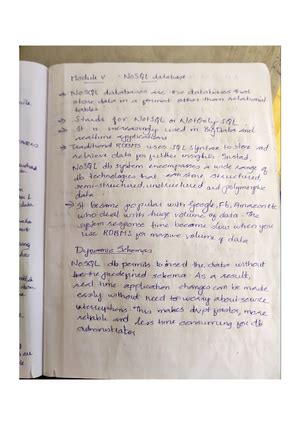 Module V NoSQL database
→ NoSQL databases are the databases that
store data in a format other than relational
tables
→ Stands for NotSQL or NotOnly SQL
→ It is increasingly used in BigData and
realtime applications
→ Traditional RDBMS uses SQL syntax to store and
retrieve data for further insights. Instead,
NoSQL db system encompasses a wide range of
db technologies that can store structured,
semi-structured, unstructured and polymorphic
data
→ It became popular with Google, Fb, Amazon etc
who deal with huge volume of data. The
system response time became slow when you
use RDBMS for massive volume of data
Dynamic Schemas
NoSQL db permits to insert the data without
predefined schema. As a result,
real time application changes can be made
easily without need to worry about service
interruptions. This makes dvpt faster, more
reliable and less time consuming for db
administrator